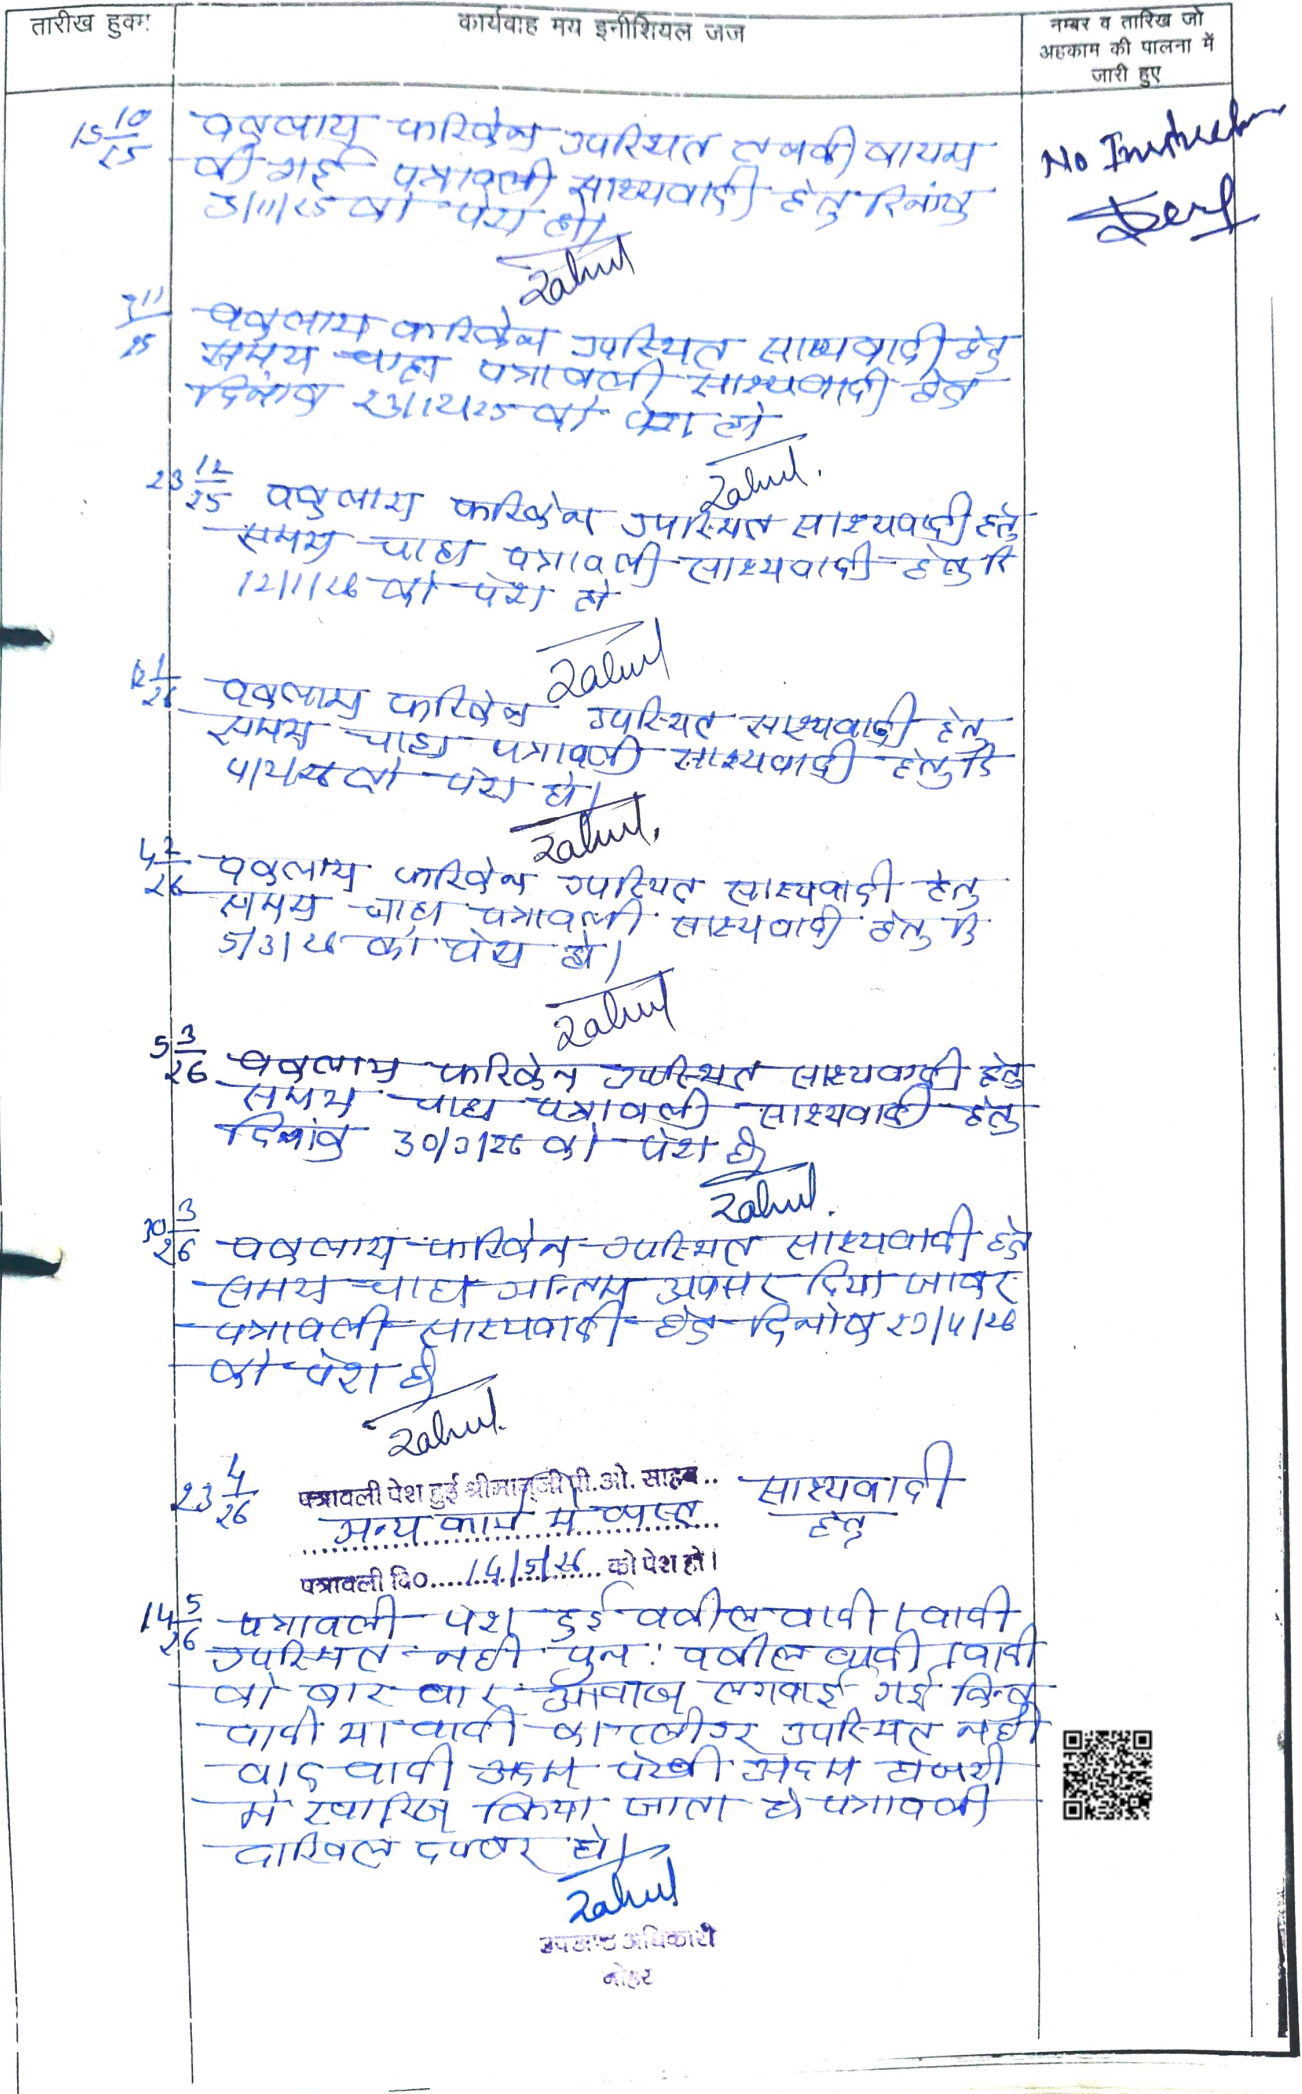 तारीख हुक्म
कार्यवाह मय इनीशियल जज
नम्बर व तारिख जो
अहकाम की पालना में
जारी हुए
15 10/25
वकुलाय फरिकेन उपस्थित तनकी कायम
की गई पत्रावली साक्ष्यवादी हेतु दिनांक
3/11/25 को पेश हो।
Rahul
No Instruction
3 11/25
वकुलाय फरिकेन उपस्थित साक्ष्यवादी हेतु
समय चाहा पत्रावली साक्ष्यवादी हेतु
दिनांक 23/12/25 को पेश हो
Rahul.
23 12/25
वकुलाय फरिकेन उपस्थित साक्ष्यवादी हेतु
समय चाहा पत्रावली साक्ष्यवादी हेतु दि
12/1/26 को पेश हो
Rahul
12 1/26
वकुलाय फरिकेन उपस्थित साक्ष्यवादी हेतु
समय चाहा पत्रावली साक्ष्यवादी हेतु दि
4/2/26 को पेश हो।
Rahul.
4 2/26
वकुलाय फरिकेन उपस्थित साक्ष्यवादी हेतु
समय चाहा पत्रावली साक्ष्यवादी हेतु दि
5/3/26 को पेश हो।
Rahul
5 3/26
वकुलाय फरिकेन उपस्थित साक्ष्यवादी हेतु
समय चाहा पत्रावली साक्ष्यवादी हेतु
दिनांक 30/3/26 को पेश हो
Rahul.
30 3/26
वकुलाय फरिकेन उपस्थित साक्ष्यवादी हेतु
समय चाहा अन्तिम अवसर दिया जाकर
पत्रावली साक्ष्यवादी हेतु दिनांक 23/4/26
को पेश हो
Rahul.
23 4/26
पत्रावली पेश हुई श्रीमान्‌जी पी.ओ. साहब..
साक्ष्यवादी
हेतु
अन्य कार्य में व्यस्त
पत्रावली दि०....14/5/26....को पेश हो।
14 5/26
पत्रावली पेश हुई वकील वादी/वादी
उपस्थित नही पुनः वकील वादी/वादी
को बार बार आवाज लगवाई गई किन्तु
वादी या वादी का लॉयर उपस्थित नही
वाद वादी अदम पैरवी अदम हाजरी
मे खारिज किया जाता हे पत्रावली
दाखिल दफ्तर हो।
Rahul
उपखण्ड अधिकारी
नोहर